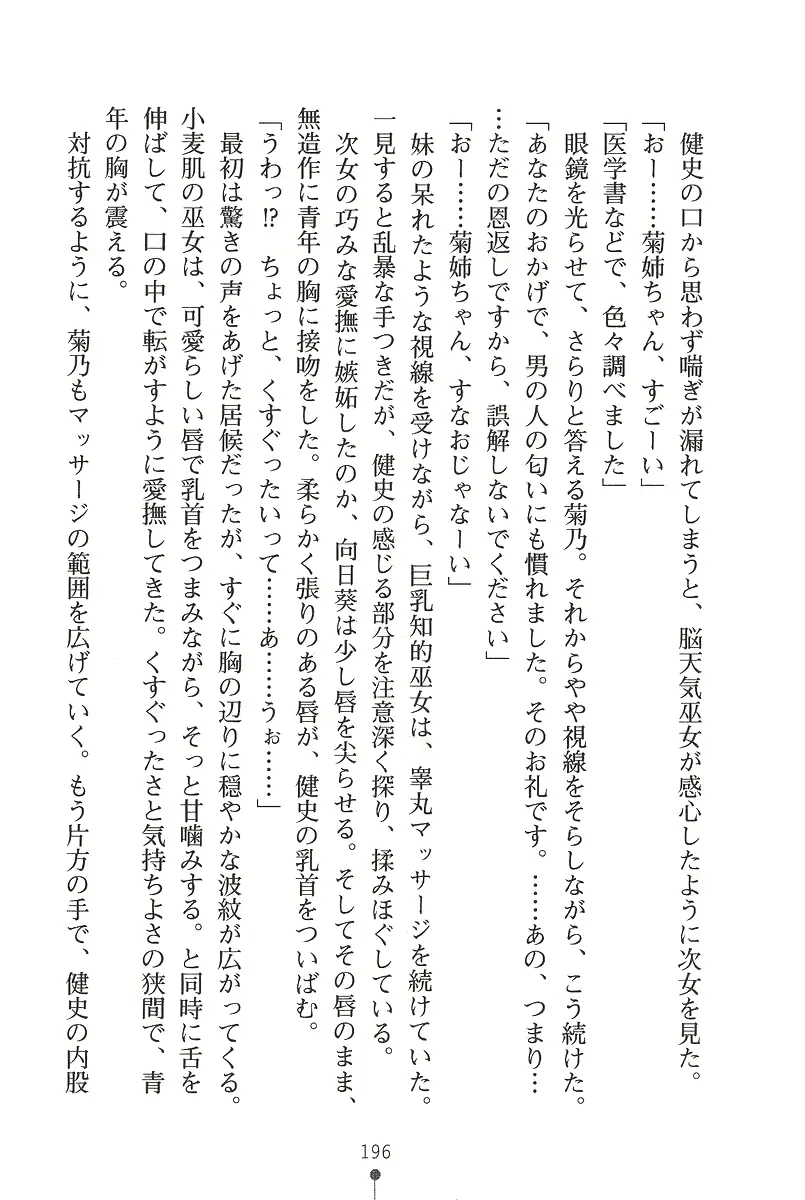 健史の口から思わず喘ぎが漏れてしまうと、脳天気巫女が感心したように次女を見た。
「おー……菊姉ちゃん、すごーい」
「医学書などで、色々調べました」
眼鏡を光らせて、さらりと答える菊乃。それからやや視線をそらしながら、こう続けた。
「あなたのおかげで、男の人の匂いにも慣れました。そのお礼です。……あの、つまり…
…ただの恩返しですから、誤解しないでください」
「おー……菊姉ちゃん、すなおじゃなーい」
妹の呆れたような視線を受けながら、巨乳知的巫女は、睾丸マッサージを続けていた。
一見すると乱暴な手つきだが、健史の感じる部分を注意深く探り、揉みほぐしている。
次女の巧みな愛撫に嫉妬したのか、向日葵は少し唇を尖らせる。そしてその唇のまま、
無造作に青年の胸に接吻をした。柔らかく張りのある唇が、健史の乳首をついばむ。
「うわっ!?　ちょっと、くすぐったいって……あ……うぉ……」
最初は驚きの声をあげた居候だったが、すぐに胸の辺りに穏やかな波紋が広がってくる。
小麦肌の巫女は、可愛らしい唇で乳首をつまみながら、そっと甘噛みする。と同時に舌を
伸ばして、口の中で転がすように愛撫してきた。くすぐったさと気持ちよさの狭間で、青
年の胸が震える。
対抗するように、菊乃もマッサージの範囲を広げていく。もう片方の手で、健史の内股
196